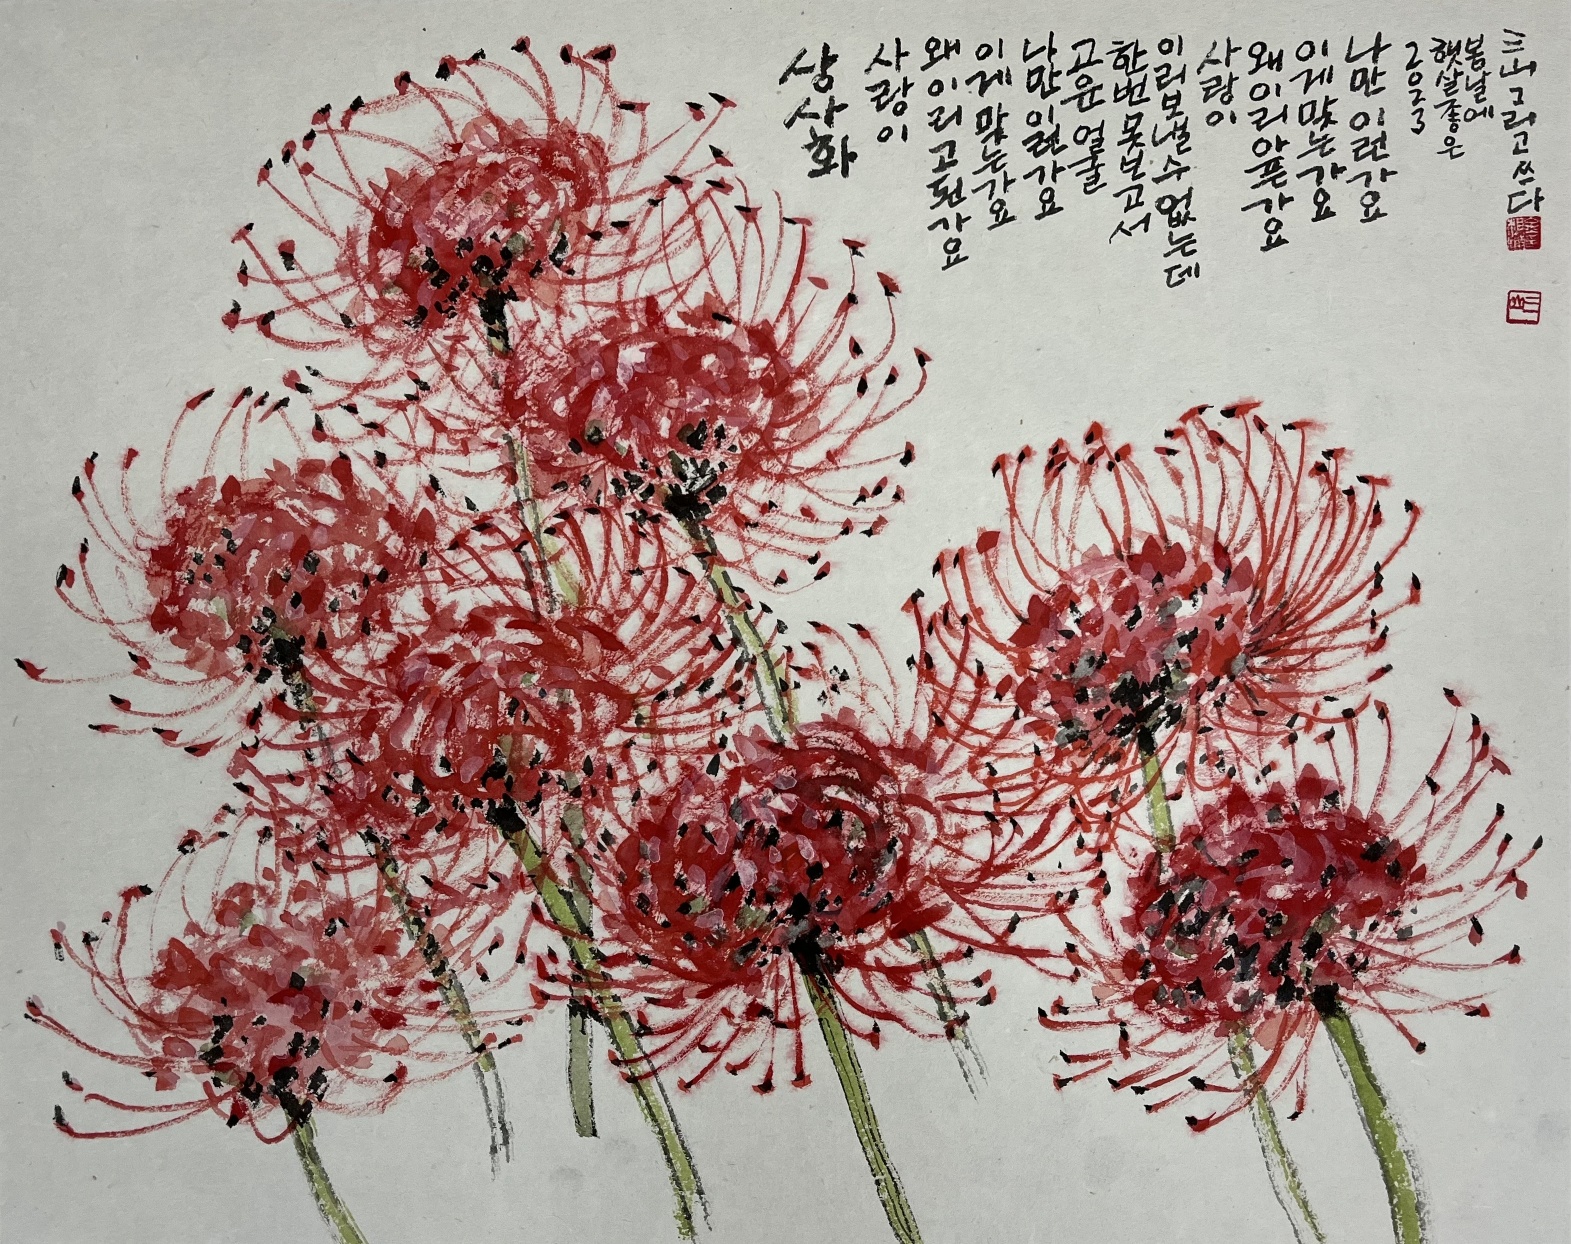 상사화
사랑이
왜 이리 고된가요
이게 맞는가요
나만 이런가요
고운 얼굴
한번 못 보고서
이리 보낼 수 없는데
사랑이
왜 이리 아픈가요
이게 맞는가요
나만 이런가요
2023
햇살좋은
봄날에
三山 그리고 쓰다